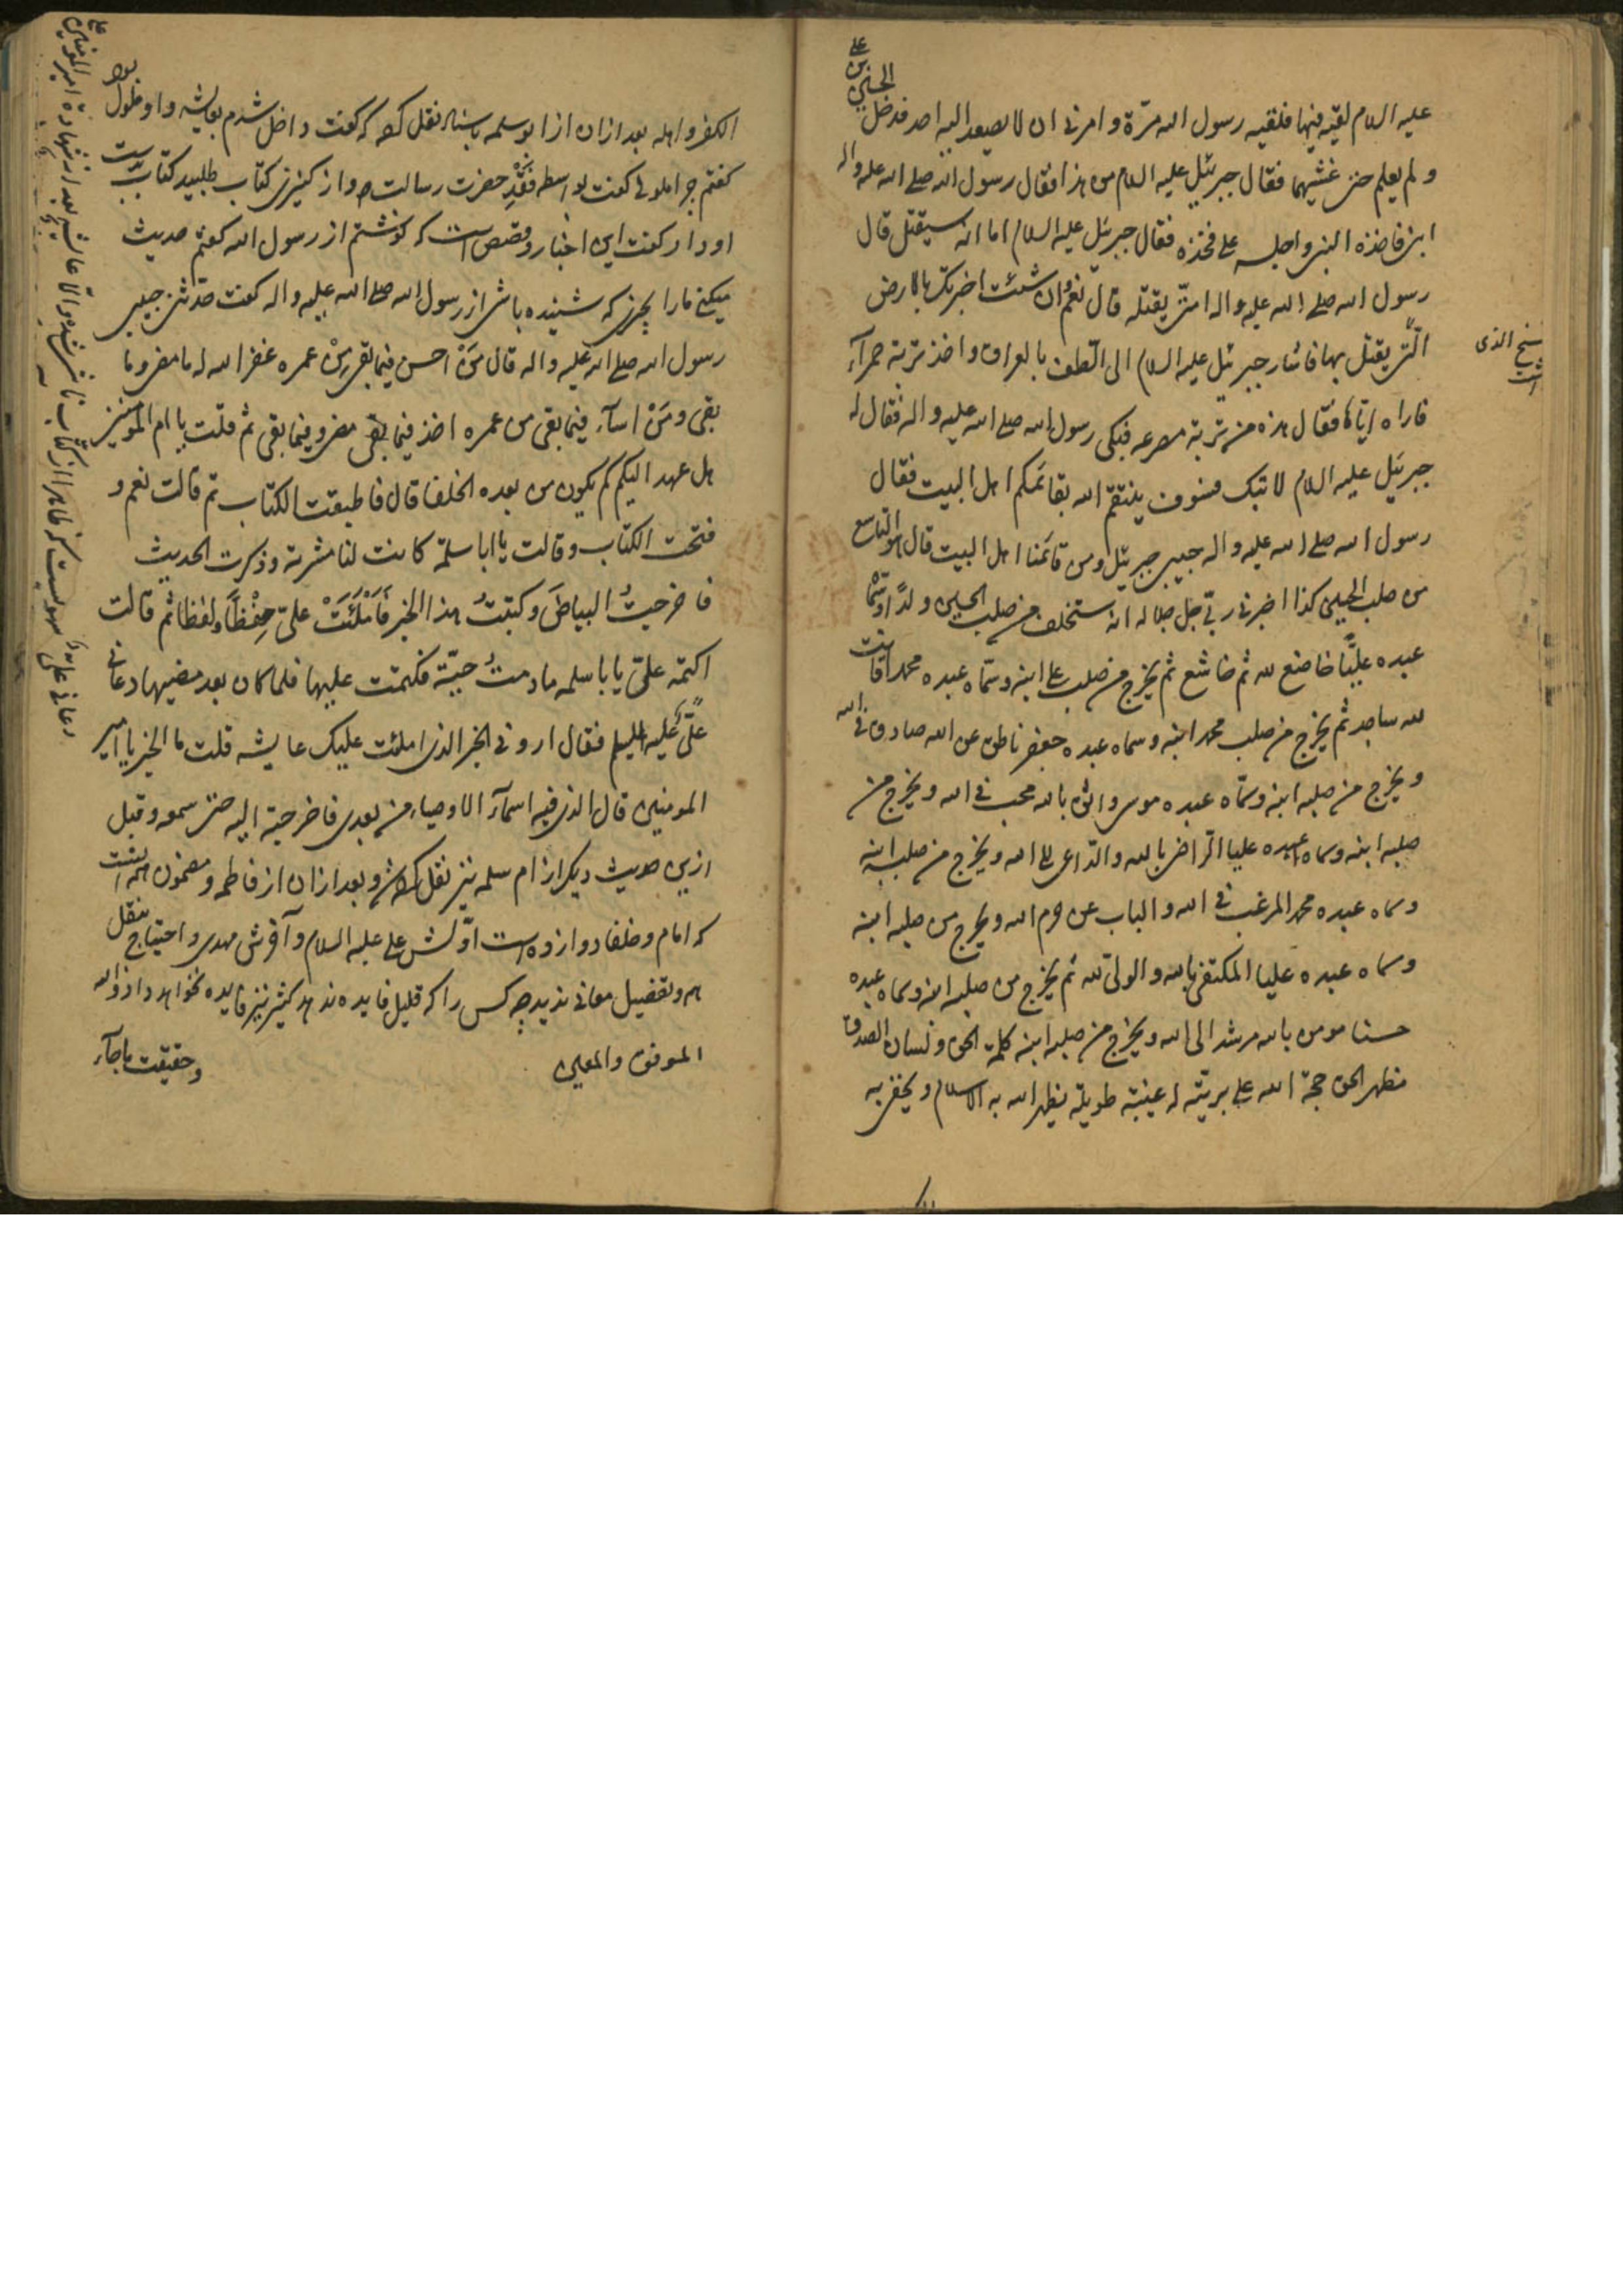 عليه السلام لقيه فيها فلقيه رسول الله مرّة و امرنى ان لا يصعد اليه احد فدخل الحسين بن على
و لم يعلم حتى غشيهما فقال جبرئيل عليه السلام من هذا فقال رسول الله صلى الله عليه واله
ابنى فاخذه النبى واجلسه على فخذه فقال جبرئيل عليه السلام اما انه سيقتل قال
رسول الله صلى الله عليه واله امتى يقتله قال نعم و ان شئت اخبرتك بالارض
الّتى يقتل بها فاشار جبرئيل عليه السلام الى الطف بالعراق واخذ تربة حمرآء
فاراه ايّاها فقال هذه من تربة مصرعه فبكى رسول الله صلى الله عليه واله فقال له
جبرئيل عليه السلام لا تبك فسوف ينتقم الله بقائمكم اهل البيت فقال
رسول الله صلى الله عليه واله حبيبى جبرئيل ومن قائمنا اهل البيت قال هو التاسع
من صلب الحسين كذا اخبرنى ربّى جل جلاله انه ستخلف من صلب الحسين ولدًا و سمّاه
عبده عليًّا خاضع لله ثم خاشع ثم يخرج من صلب على ابنه وسمّاه عبده محمدا قانت
لله ساجد ثم يخرج من صلب محمد ابنه وسماه عبده جعفر ناطق عن الله صادق فى الله
و يخرج من صلبه ابنه وسمّاه عبده موسى واثق بالله محب فى الله و يخرج من
صلبه ابنه وسماه عبده عليا الراضى بالله والدّاعى الى الله ويخرج من صلبه ابنه
وسماه عبده محمد المرغب فى الله و الباب عن حرم الله ويخرج من صلبه ابنه
وسماه عبده عليا المكتفى بالله والولى لله ثم يخرج من صلبه ابنه وسماه عبده
حسنا مومن بالله مرشد الى الله ويخرج من صلبه ابنه كلمة الحق ولسان الصدق
مظهر الحق حجة الله على بريّته له غيبة طويلة يظهر الله به الاسلام ويخفى به
نسخ الذى
الكفر واهله بعد ازان از ابو سلمه باسناد نقل كرده كه گفت داخل شدم بعايشه و او ملول بود
گفتم چرا ملولى گفت بواسطه فَقْدِ حضرت رسالت ص و از كنيزى كتاب طلبيد كتاب بدست
او داد گفت اين اخبار و قصص است كه نوشتم از رسول الله گفتم حديث
ميكنى مارا بچيزى كه شنيده باشى از رسول الله صلى الله عليه واله گفت حدّثنى حبيبى
رسول الله صلى الله عليه واله قال مَنْ احسن فيما بقى مِنْ عمره غفر الله له ما مضى وما
بقى ومَنْ اسآء فيما بقى من عمره اخذ فيما مضى وفيما بقى ثم قلت يا ام المومنين
هل عهد اليكم كم يكون من بعده الخلفا قال فاطبقت الكتاب ثم قالت نعم و
فتحت الكتاب وقالت يا ابا سلمة كانت لنا مشربة وذكرت الحديث
فاخرجتُ البياضَ وكتبتُ هذا الخبر فَاَمْلَئَتْ علىّ حِفْظًا ولفظا ثم قالت
اكتمه علىّ يا با سلمه ما دمتُ حيّة فكتمت عليها فلما كان بعد مضيها دعانى
علىّ عليه السلم فقال ارونى الخبر الذى املئت عليك عايشه قلت ما الخبر يا امير
المومنين قال الذى فيه اسمآء الاوصياء من بعدى فاخرجته اليه حتى سمعه و قبل
ازين حديث ديكر از ام سلمه نيز نقل كرده و بعد ازان از فاطمه و مضمون همه اينست
كه امام و خلفا دوازده است اوّلش على عليه السلام و آخرش مهدى و احتياج بنقل
همه وتفصيل معانى نديد چه كس را كه قليل فايده ندهد كثير نيز فايده نخواهد داد والله
الموفق والمعين
وحقيقت ماجآء